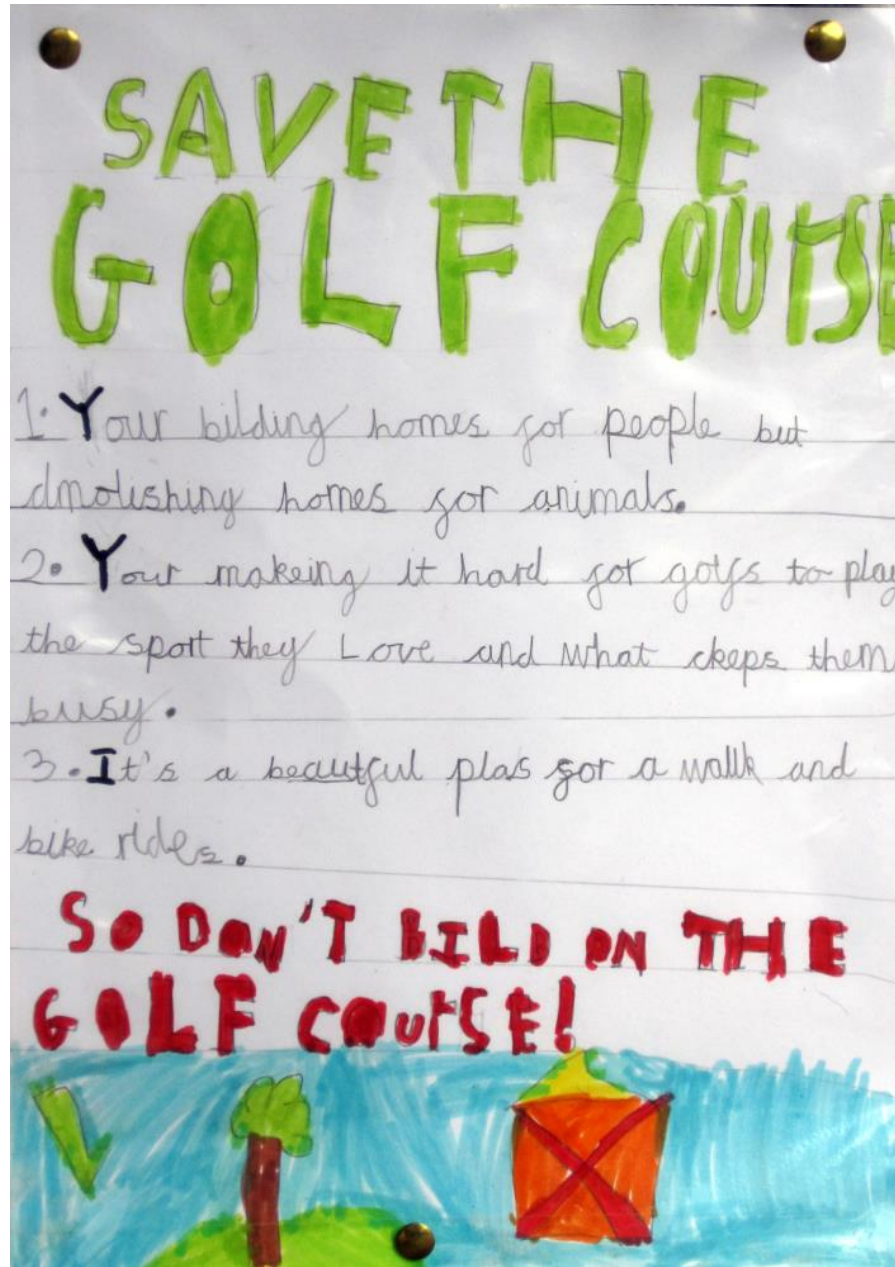 SAVE THE
GOLF COURSE
1. Your bilding homes for people but
dmolishing homes for animals.
2. Your makeing it hard for golfs to play
the sport they Love and what ckeps them
busy.
3. It's a beautful plas for a wallk and
bike rides.
SO DON'T BILD ON THE
GOLF COURSE!